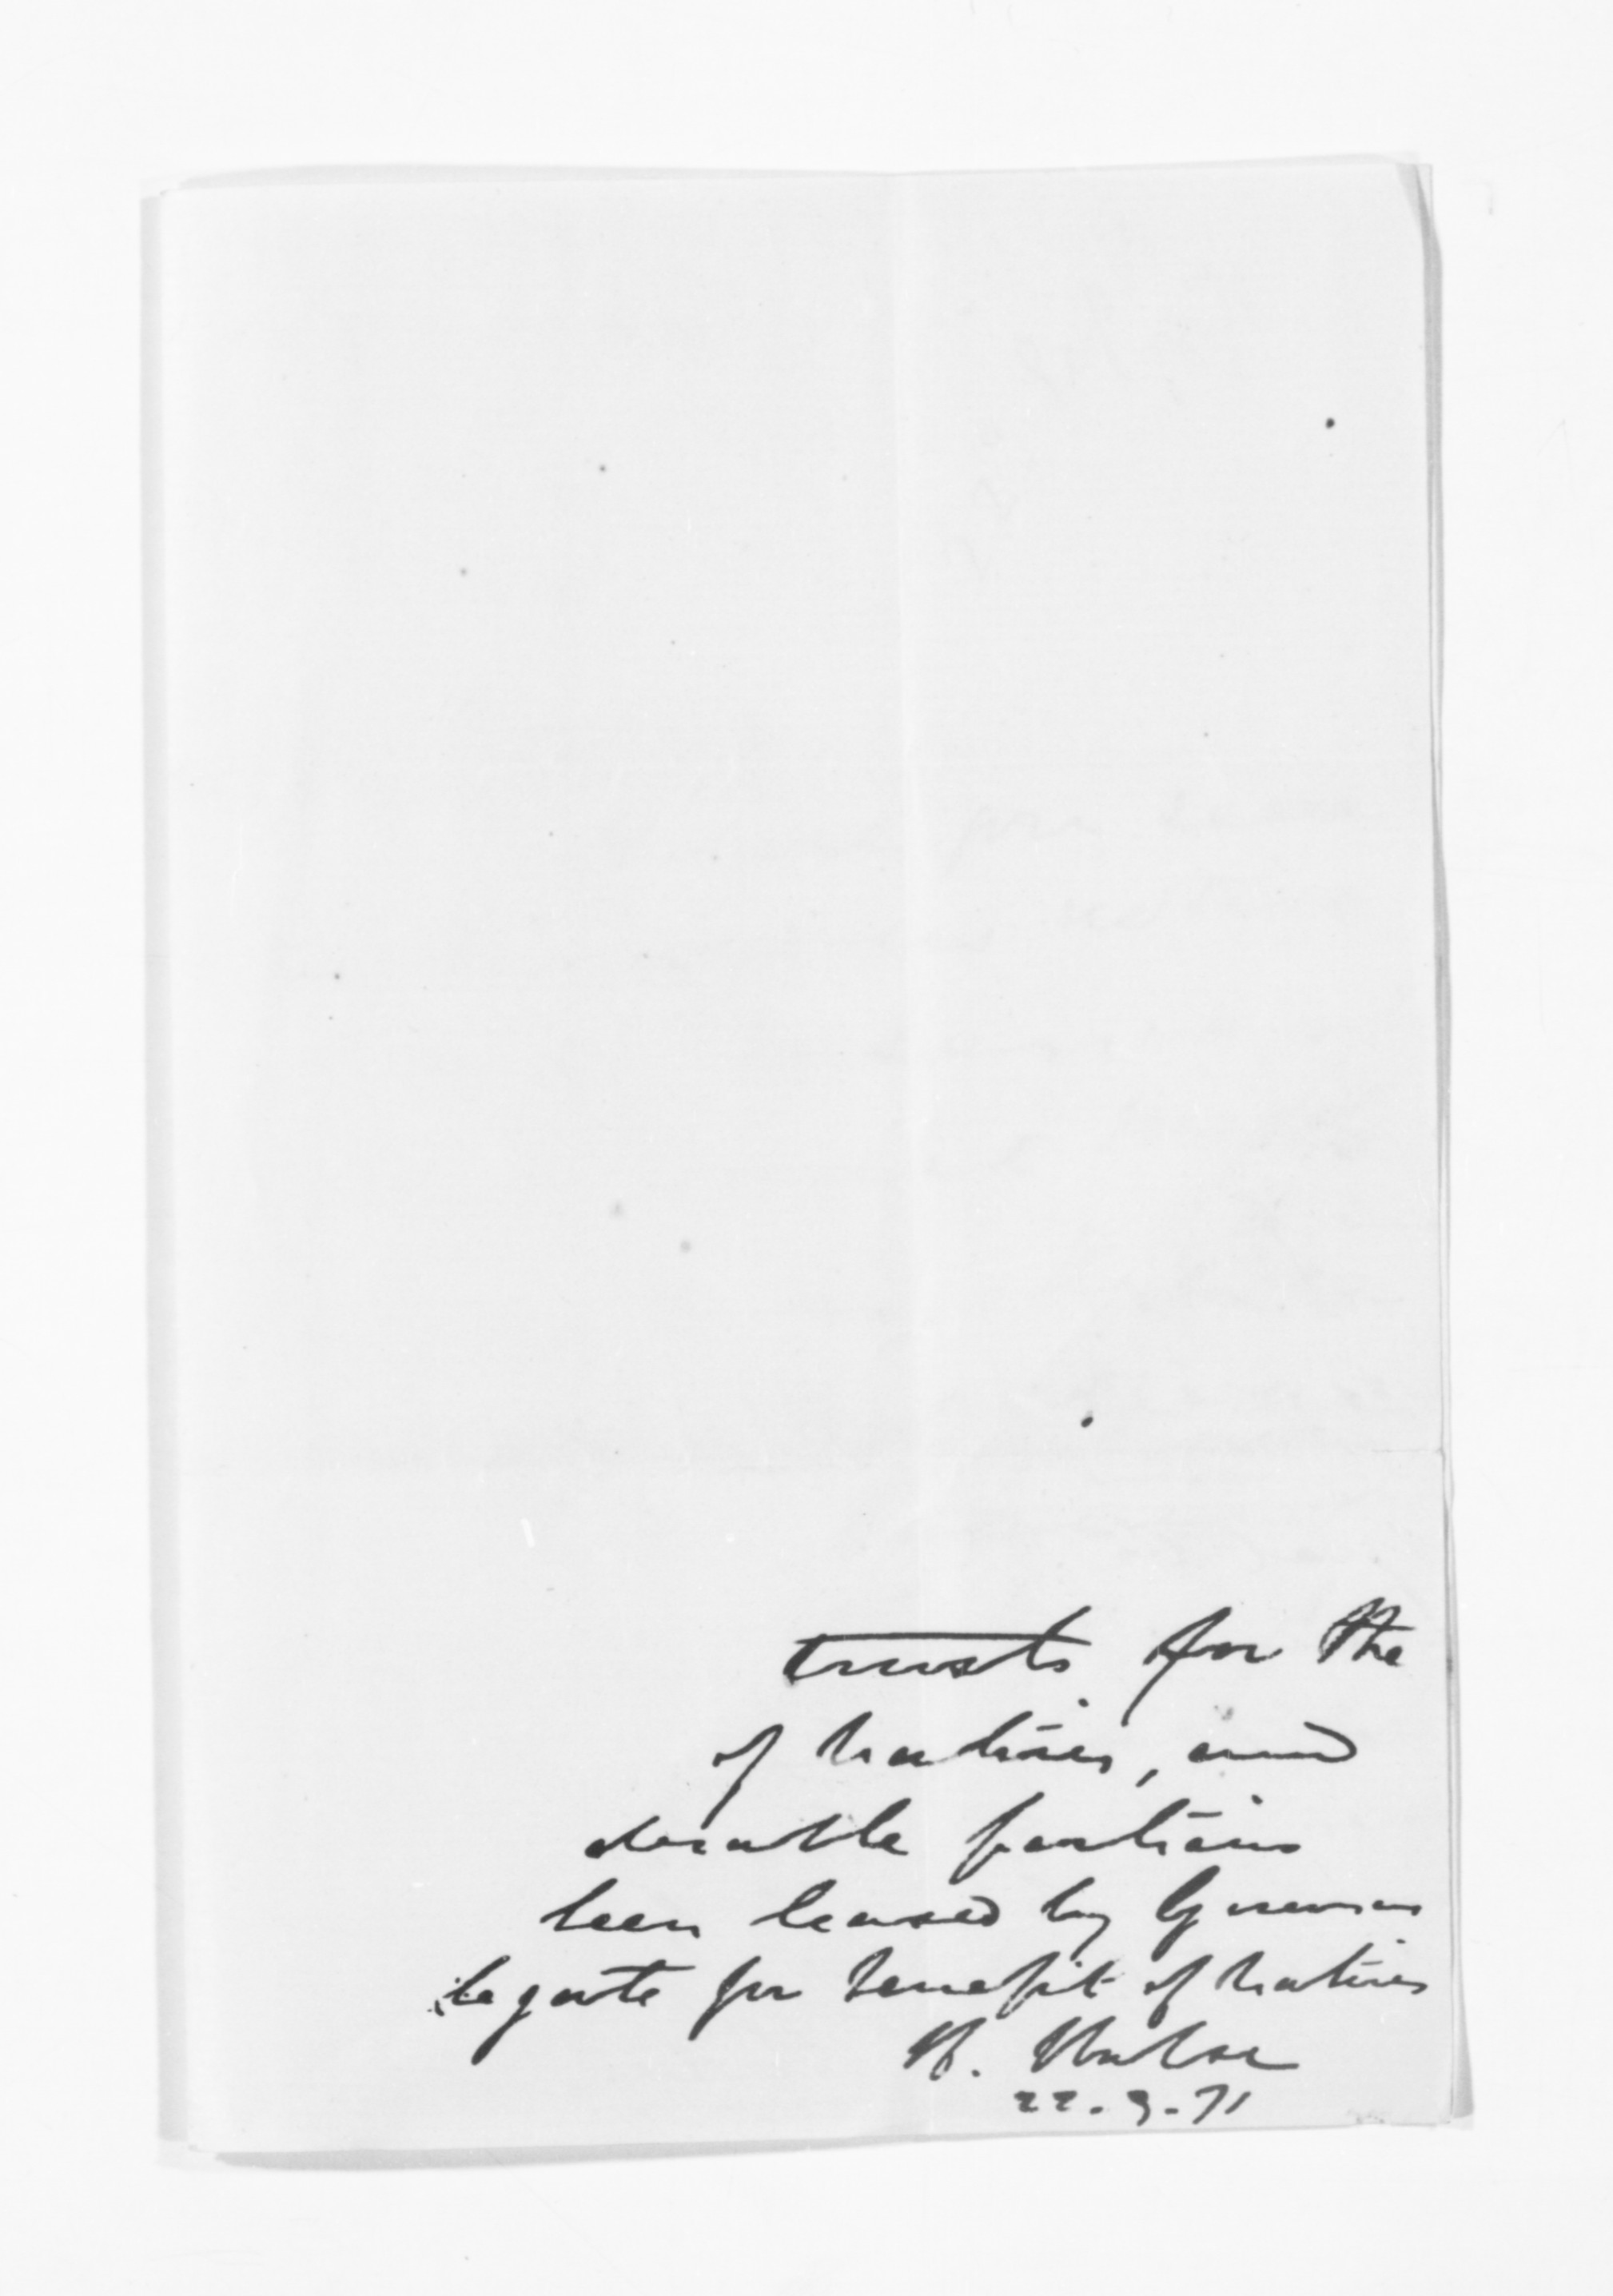 trusts for the
of natives, and
derable portions
been leased by Governor
legate for benefit of natives
H. Halse
22.3.71